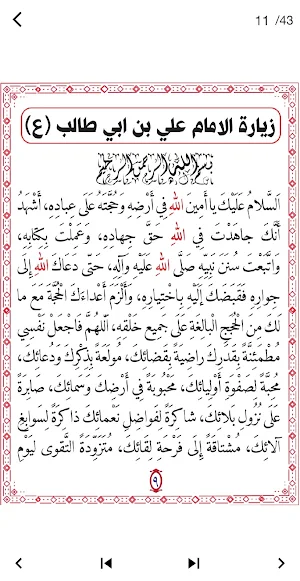 11 /43
زيارة الامام علي بن ابي طالب (ع)
بسم الله الرحمن الرحيم
اَلسَّلامُ عَلَيْكَ يا اَمِينَ اللهِ فِي أَرْضِهِ وَحُجَّتَهُ عَلَى عِبادِهِ، أَشْهَدُ
أَنَّكَ جاهَدْتَ فِي اللهِ حَقَّ جِهادِهِ، وَعَمِلْتَ بِكِتابِهِ،
وَاتَّبَعْتَ سُنَنَ نَبِيِّهِ صَلَّى اللهُ عَلَيْهِ وَآلِهِ، حَتّى دَعَاكَ اللهُ إِلَى
جِوارِهِ فَقَبَضَكَ إِلَيْهِ بِاخْتِيارِهِ، وَأَلْزَمَ أَعْداءَكَ الْحُجَّةَ مَعَ ما
لَكَ مِنَ الْحُجَجِ الْبالِغَةِ عَلَى جَمِيعِ خَلْقِهِ، اَللّهُمَّ فَاجْعَلْ نَفْسِي
مُطْمَئِنَّةً بِقَدَرِكَ راضِيَةً بِقَضائِكَ، مُولَعَةً بِذِكْرِكَ وَدُعائِكَ،
مُحِبَّةً لِصَفْوَةِ أَوْلِيائِكَ، مَحْبُوبَةً فِي أَرْضِكَ وَسَمائِكَ، صابِرَةً
عَلَى نُزُولِ بَلائِكَ، شاكِرَةً لِفَواضِلِ نَعْمائِكَ ذاكِرَةً لِسَوابِغِ
آلائِكَ، مُشْتاقَةً إِلَى فَرْحَةِ لِقائِكَ، مُتَزَوِّدَةً التَّقْوى لِيَوْمِ
٩